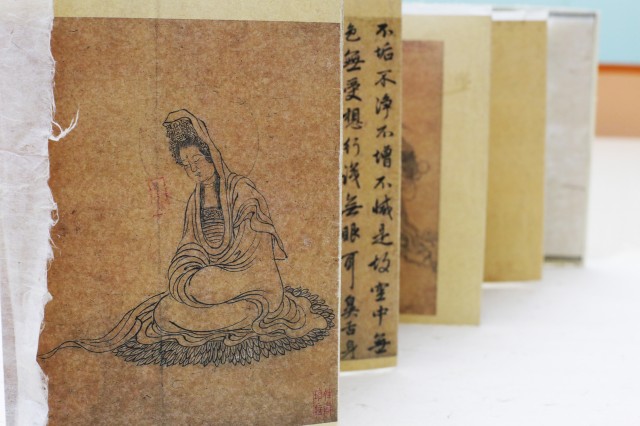 不垢不淨不增不減是故空中無
色無受想行識無眼耳鼻舌身